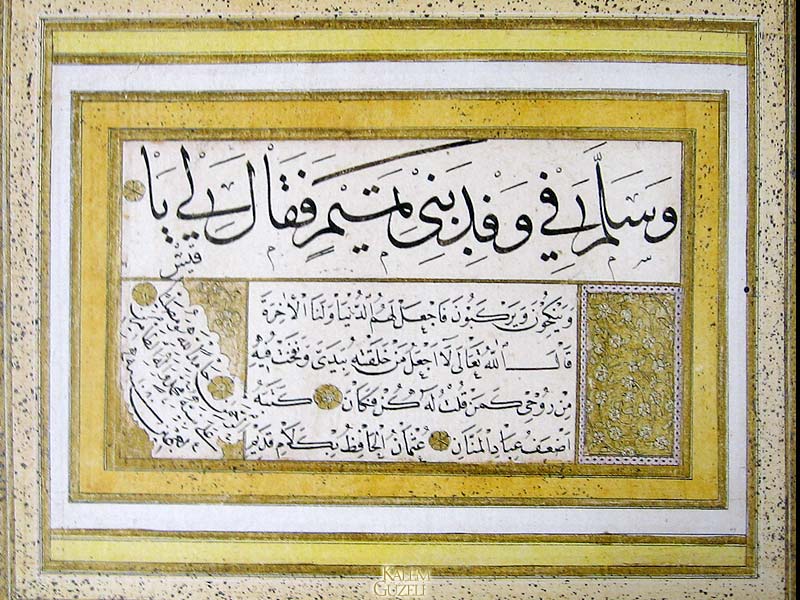 وَسَلَّمَ فِي وَفْدِ بَنِي تَمِيمٍ فَقَالَ لِي يَا
قيس
وينكحون ويركبون فاجعل لهم الدنيا ولنا الآخرة
قال الله تعالى لا اجعل من خلقته بيدى ونفخت فيه
من روحى كمن قلت له كن فكان كتبه
اضعف عباد المنان عثمان الحافظ بكلام قديم
KALEM
GÜZELİ